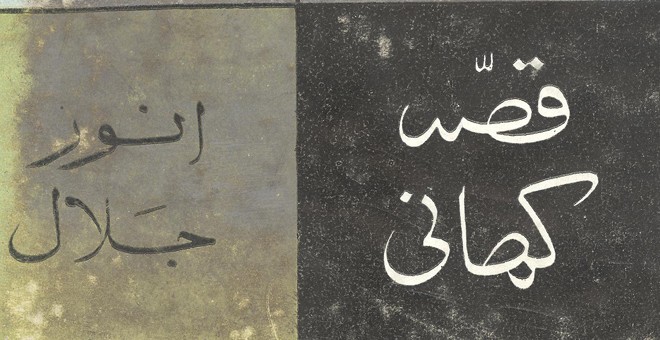 قصّہ
کہانی
انور
جَلال